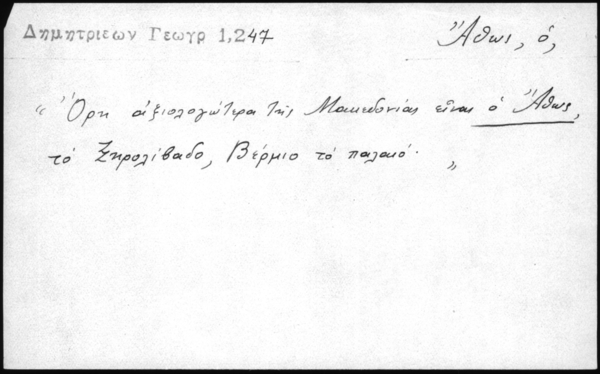 Δημητριεων Γεωγρ 1,247
Ἄθως, ὁ,
“ Ὄρη ἀξιολογώτερα τῆς Μακεδονίας εἶναι ὁ Ἄθως,
τὸ Ξηρολίβαδο, Βέρμιο τὸ παλαιό· „